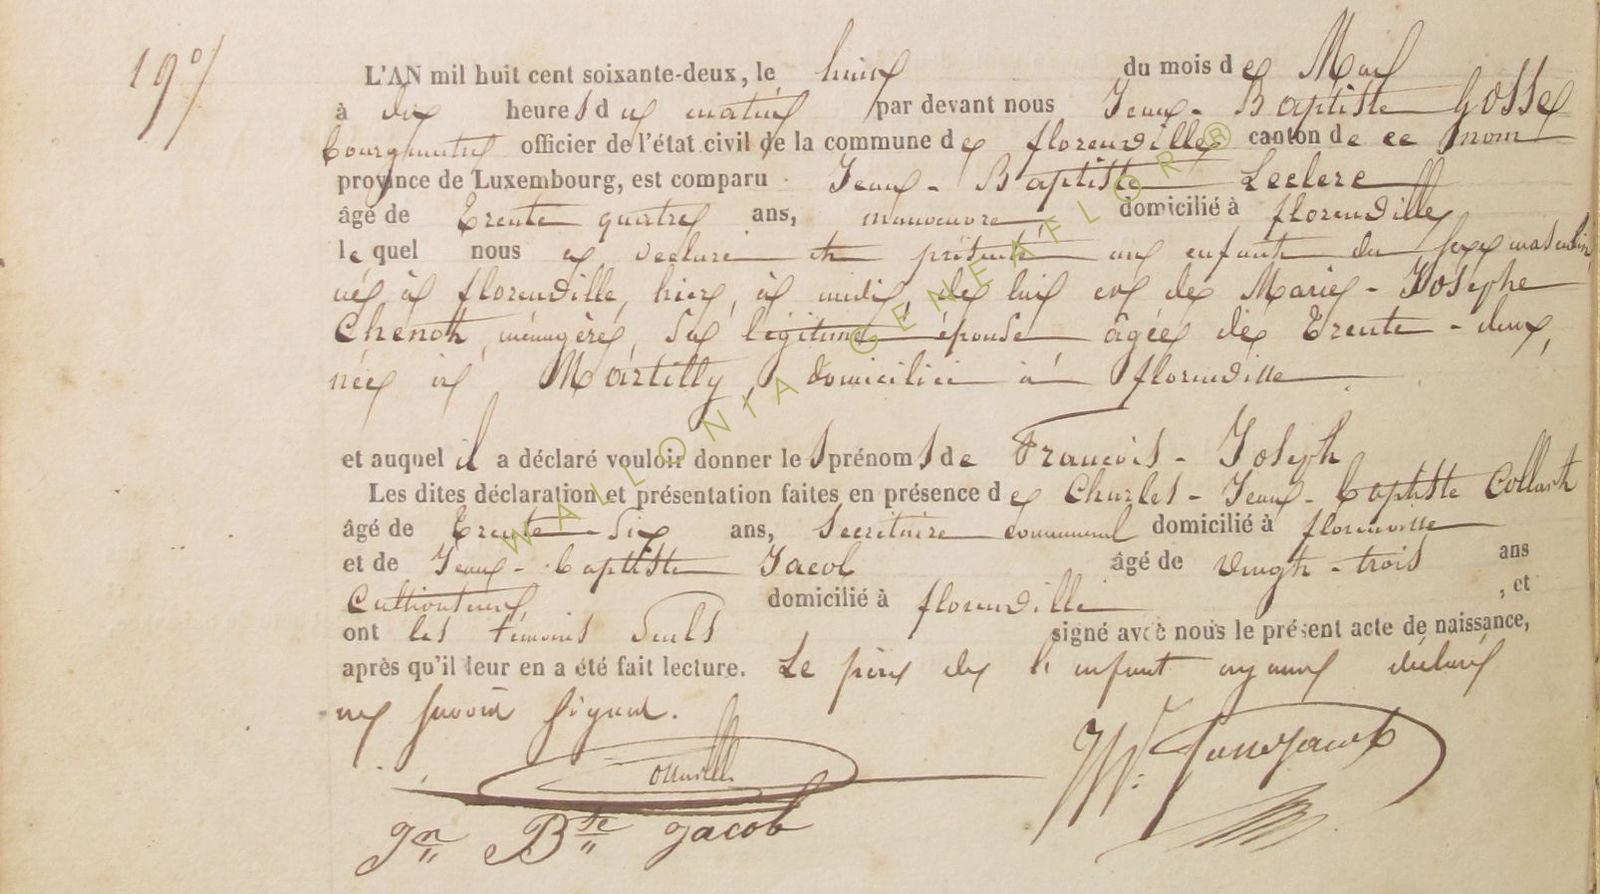 19º/
L'AN mil huit cent soixante-deux, le huit du mois de Mars
à dix heures du matin par devant nous Jean-Baptiste Gosse
bourgmestre officier de l'état civil de la commune de florenville canton de ce nom
province de Luxembourg, est comparu Jean-Baptiste Leclere
âgé de Trente quatre ans, manoeuvre domicilié à florenville
le quel nous a déclaré et présenté un enfant du sexe masculin,
né à florenville, hier, à midi, de lui et de Marie-Josephe
Chenot, ménagère, sa légitime épouse âgée de Trente-deux,
née à Martilly, domiciliée à florenville
et auquel il a déclaré vouloir donner les prénoms de Francois-Joseph
Les dites déclaration et présentation faites en présence de Charles-Jean-baptiste Collart
âgé de Trente-Six ans, Secrétaire communal domicilié à florenville
et de Jean-baptiste Jacob âgé de vingt-trois ans
Cultivateur, domicilié à florenville, et
ont les témoins seuls signé avec nous le présent acte de naissance,
après qu'il leur en a été fait lecture. Le père de l'enfant ayant déclaré
ne savoir signer.
Jn Bte Jacob
WALLONIA GENEAFLOR®